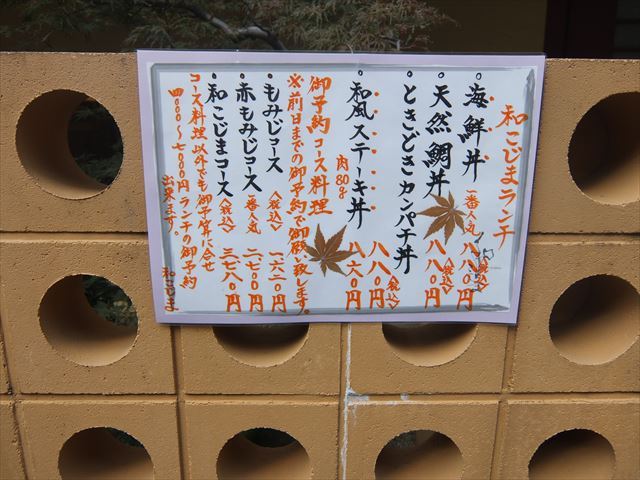 和こじまランチ
海鮮丼 一番人気 (税込) 八八0円
天然鯛丼 (税込) 八八0円
ときどきカンパチ丼 (税込) 八八0円
和風ステーキ丼 肉80g 八六0円
御予約コース料理
※前日までの御予約で御願い致します。
もみじコース (税込) 一六二0円
赤もみじコース 一番人気 (税込) 二七00円
和こじまコース (税込) 三七八0円
コース料理以外でも御予算に合せ
四000〜七000円ランチの御予約
出来ます。 和こじま